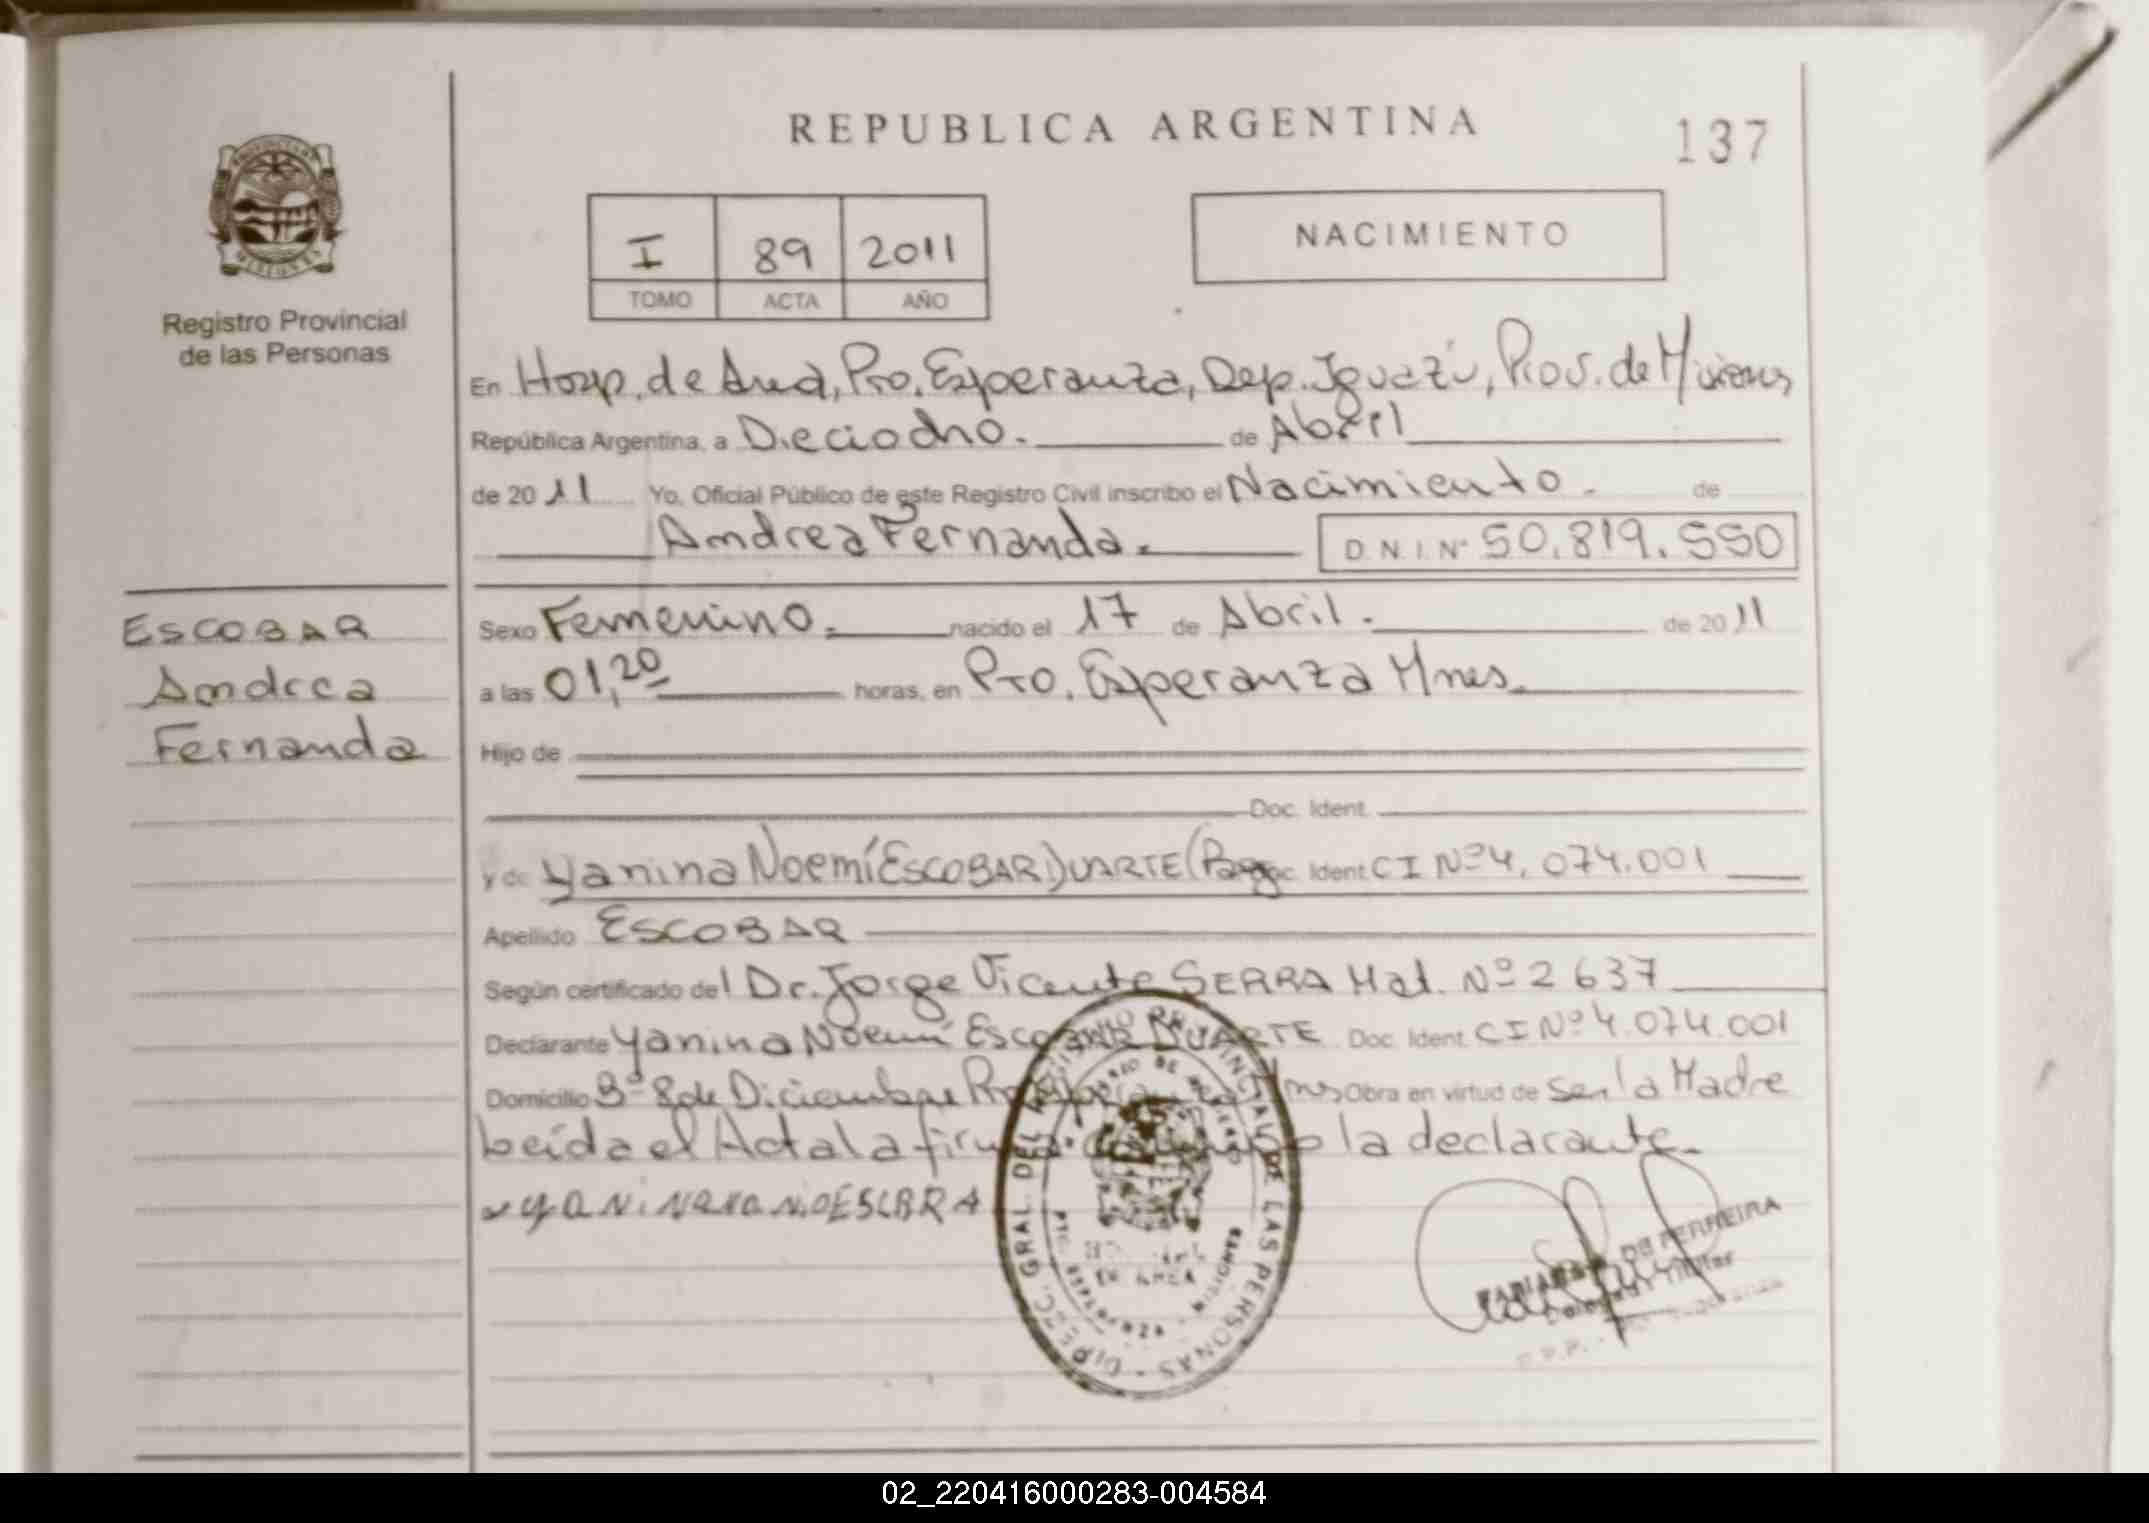 REPUBLICA ARGENTINA
137
I 89 2011
TOMO ACTA AÑO
NACIMIENTO
Registro Provincial
de las Personas
En Hosp. de Area, Pto. Esperanza, Dep. Iguazú, Prov. de Misiones
República Argentina, a Dieciocho. de Abril
de 2011 Yo, Oficial Público de este Registro Civil inscribo el Nacimiento. de
Andrea Fernanda. D.N.I. Nº 50.819.550
ESCOBAR
Andrea
Fernanda
Sexo Femenino. nacido el 17 de Abril. de 2011
a las 01,20 horas, en Pto. Esperanza Mnes.
Hijo de
Doc. Ident.
y de Yanina Noemí ESCOBAR DUARTE (Parag Doc. Ident CI Nº 4.074.001
Apellido ESCOBAR
Según certificado del Dr. Jorge Vicente SERRA Mat. Nº 2637
Declarante Yanina Noemí Escobar DUARTE Doc. Ident. CI Nº 4.074.001
Domicilio Bº 8 de Diciembre Pto Esperanza Mnes Obra en virtud de ser la Madre
Leída el Acta la firma la declarante.
DIREC. GRAL. DEL REGISTRO PROVINCIAL DE LAS PERSONAS
DE AREA
PTO. ESPERANZA - MISIONES
DE FERREIRA
02_220416000283-004584